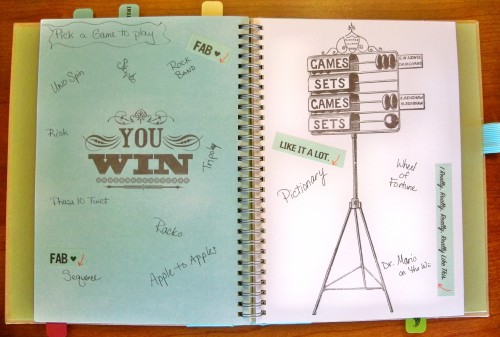 Pick a Game to play
FAB ♥
Uno Spin
ROCK
BAND
Risk
YOU
WIN
Tripoly
Phase 10 Twist
Racko
FAB ♥
Sequence
Apple to Apples
GAMES
SETS
GAMES
SETS
LIKE IT A LOT.
Pictionary
Wheel
of
Fortune
I Really, Really, Really, Really Like This.
Dr. Mario
on the Wii